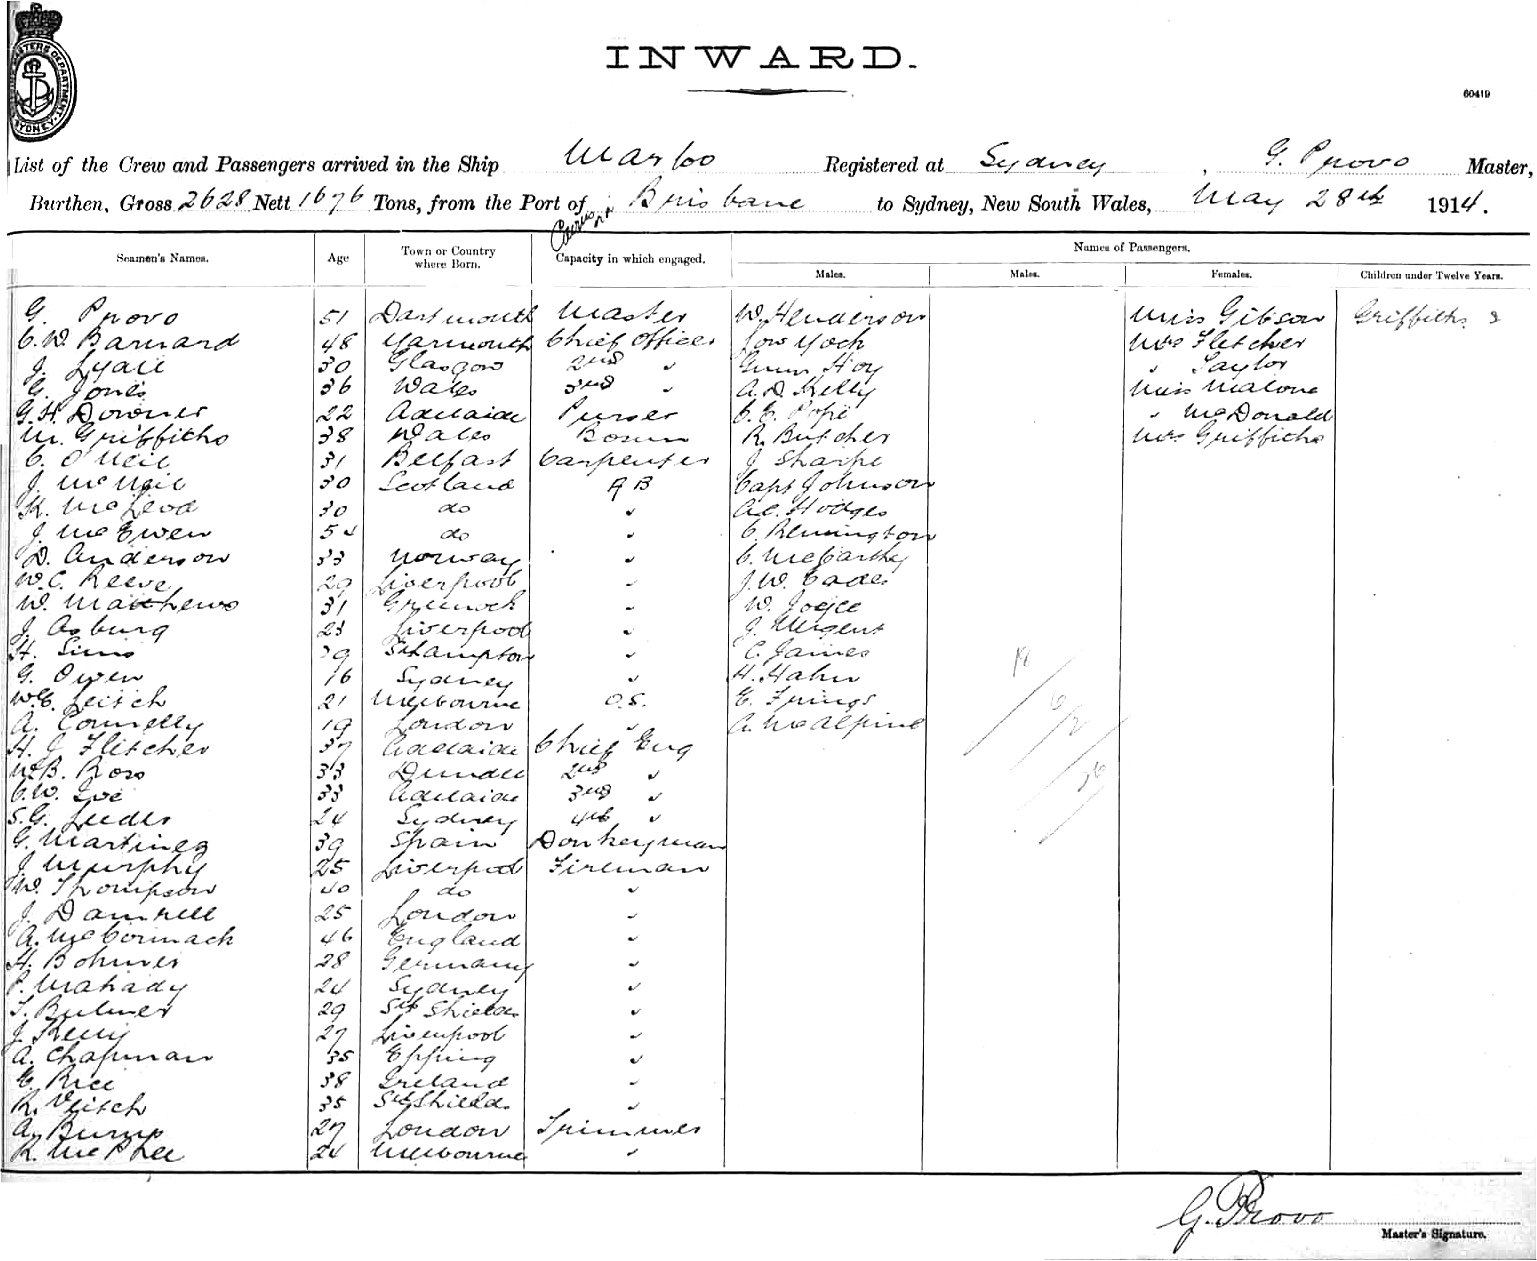 INWARD.
60419
List of the Crew and Passengers arrived in the Ship Marloo Registered at Sydney, G. Provo Master,
Burthen, Gross 2628 Nett 1676 Tons, from the Port of Cairns via Brisbane to Sydney, New South Wales, May 28th 1914.
Seamen's Names. Age Town or Country where Born. Capacity in which engaged. Names of Passengers.
Males. Males. Females. Children under Twelve Years.
G. Provo 51 Dartmouth Master W. Henderson Miss Gibson Griffiths 2
C. W. Barnard 48 Yarmouth Chief Officer Low Yock Mrs Fletcher
J. Lyall 30 Glasgow 2nd " Hoy " Taylor
G. Jones 36 Wales 3rd " A. D. Kelly Miss Malone
G. H. Downer 22 Adelaide Purser C. C. Pope " McDonald
M. Griffiths 38 Wales Bosun R. Butcher Mrs Griffiths
C. O'Neil 31 Belfast Carpenter J. Sharpe
J. McNeil 30 Scotland A B Capt Johnson
K. McLeod 30 do " A. C. Hodges
J. McEwen 54 do " C. Remington
D. Anderson 33 Norway " C. McCarthy
W. C. Reeve 29 Liverpool " J. W. Eades
W. Matthews 31 Greenock " W. Joyce
J. Asburg 23 Liverpool " J. Nugent
H. Sims 39 Sthampton " C. James
G. Owen 16 Sydney " H. Hahn
W. E. Leitch 21 Melbourne O. S. E. Frings
A. Connelly 19 London " A. McAlpine
H. J. Fletcher 37 Adelaide Chief Eng
W. B. Ross 33 Dundee 2nd "
C. W. Ive 33 Adelaide 3rd "
S. G. Leeder 24 Sydney 4th "
G. Martinez 39 Spain Donkeyman
J. Murphy 25 Liverpool Fireman
W. Thompson 40 do "
J. Damrell 25 London "
A. McCormack 46 England "
H. Bohmer 28 Germany "
P. Mahady 24 Sydney "
T. Bulmer 29 Sth Shields "
J. Kelly 27 Liverpool "
A. Chapman 35 Epping "
E. Rice 38 Ireland "
R. Veitch 35 Sth Shields "
A. Bump 27 London Trimmer
K. McPhee 24 Melbourne "
18
6/2
26
G. Provo
Master's Signature.